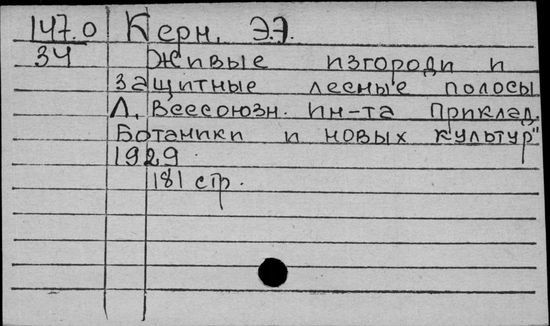 147.0 Керн, Э.Э.
34 Живые изгороди и
защитные лесные полосы
Л. Всесоюзн. Ин-та Приклад.
Ботаники и новых культур"
1929
181 стр.